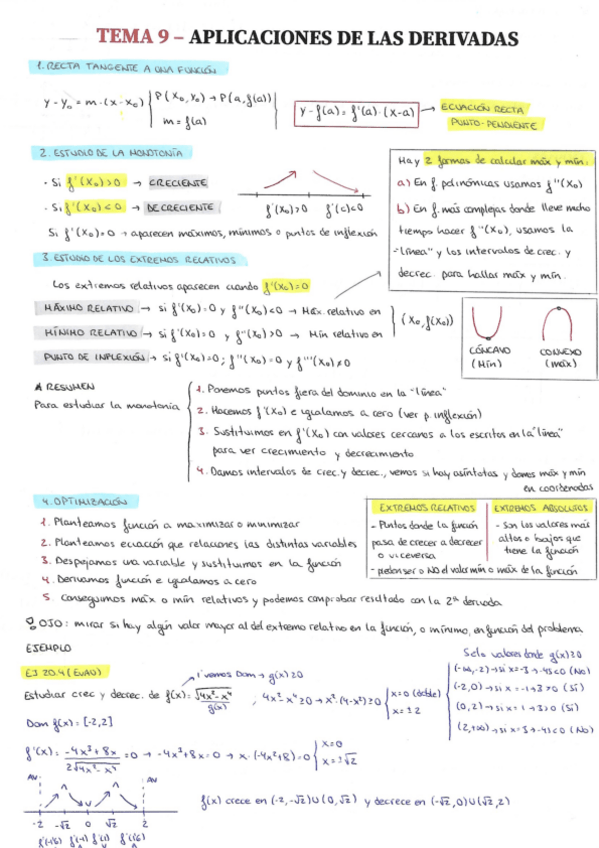 TEMA 9 – APLICACIONES DE LAS DERIVADAS
1. RECTA TANGENTE A UNA FUNCIÓN
y - y₀ = m · (x - x₀) P(x₀, y₀) → P(a, f(a))
m = f(a)
y - f(a) = f'(a) · (x-a) → ECUACIÓN RECTA
PUNTO-PENDIENTE
2. ESTUDIO DE LA MONOTONÍA
· Si f'(x₀) > 0 → CRECIENTE
· Si f'(x₀) < 0 → DECRECIENTE
f'(x₀)>0 f'(c)<0
Si f'(x₀) = 0 → aparecen máximos, mínimos o puntos de inflexión
Hay 2 formas de calcular máx y mín:
a) En f. polinómicas usamos f''(x₀)
b) En f. más complejas donde lleve mucho
tiempo hacer f''(x₀), usamos la
"línea" y los intervalos de crec. y
decrec. para hallar máx y mín.
3. ESTUDIO DE LOS EXTREMOS RELATIVOS
Los extremos relativos aparecen cuando f'(x₀)=0
MÁXIMO RELATIVO → si f'(x₀)=0 y f''(x₀)<0 → Máx. relativo en
MÍNIMO RELATIVO → si f'(x₀)=0 y f''(x₀)>0 → Mín relativo en
(x₀, f(x₀))
PUNTO DE INFLEXIÓN → si f'(x₀)=0; f''(x₀)=0 y f'''(x₀)≠0
CÓNCAVO
(Mín)
CONVEXO
(máx)
RESUMEN
Para estudiar la monotonía
1. Ponemos puntos fuera del dominio en la "línea"
2. Hacemos f'(x₀) e igualamos a cero (ver p. inflexión)
3. Sustituimos en f'(x₀) con valores cercanos a los escritos en la "línea"
para ver crecimiento y decrecimiento
4. Damos intervalos de crec. y decrec., vemos si hay asíntotas y damos máx y mín
en coordenadas
4. OPTIMIZACIÓN
1. Planteamos función a maximizar o minimizar
2. Planteamos ecuación que relaciones las distintas variables
3. Despejamos una variable y sustituimos en la función
4. Derivamos función e igualamos a cero
5. Conseguimos máx o mín relativos y podemos comprobar resultado con la 2ª derivada
EXTREMOS RELATIVOS
- Puntos donde la función
pasa de crecer a decrecer
o viceversa
- pueden ser o NO el valor mín o máx de la función
EXTREMOS ABSOLUTOS
- Son los valores más
altos o bajos que
tiene la función
OJO: mirar si hay algún valor mayor al del extremo relativo en la función, o mínimo, en función del problema
EJEMPLO
EJ 20.4 (EVAU)
1º vemos Dom → g(x)≥0
Estudiar crec y decrec. de f(x)= √4x²-x⁴
g(x)
, 4x²-x⁴≥0 → x²·(4-x²)≥0 x=0 (doble)
x=±2
Solo valores donde g(x)≥0
(-∞,-2) → si x=-3 → -45<0 (No)
(-2,0) → si x=-1 → 3>0 (Sí)
(0,2) → si x=1 → 3>0 (Sí)
(2,+∞) → si x=3 → -45<0 (No)
Dom f(x) = [-2,2]
f'(x) = -4x³+8x / 2√4x²-x⁴ = 0 → -4x³+8x=0 → x·(-4x²+8)=0 x=0
x=±√2
AV AV
-2 -√2 0 √2 2
f'(-1'5) f'(-1) f'(1) f'(1'5)
f(x) crece en (-2,-√2)∪(0,√2) y decrece en (-√2,0)∪(√2,2)